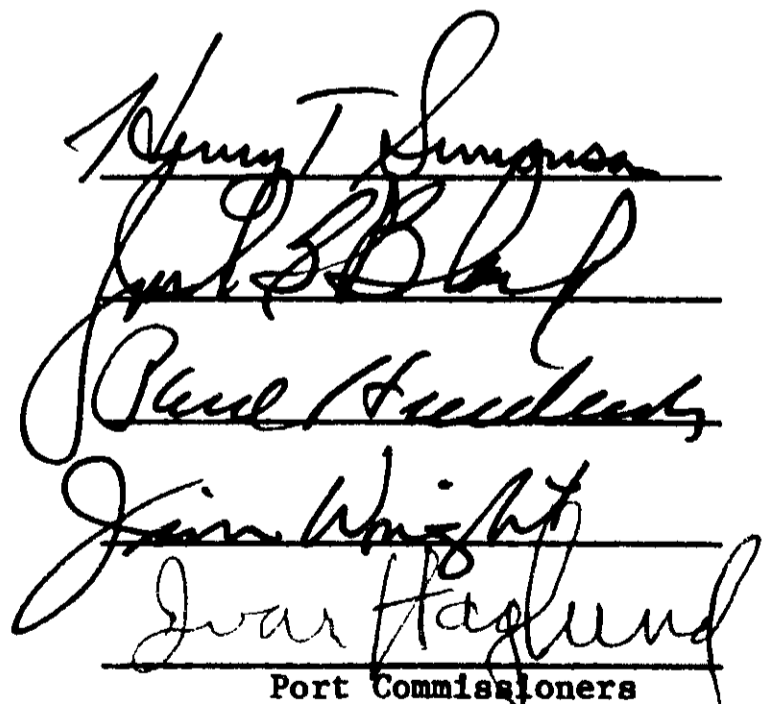 Henry T. Simonson
Jack B Block
Paul Friedlander
Jim Wright
Ivar Haglund
Port Commissioners